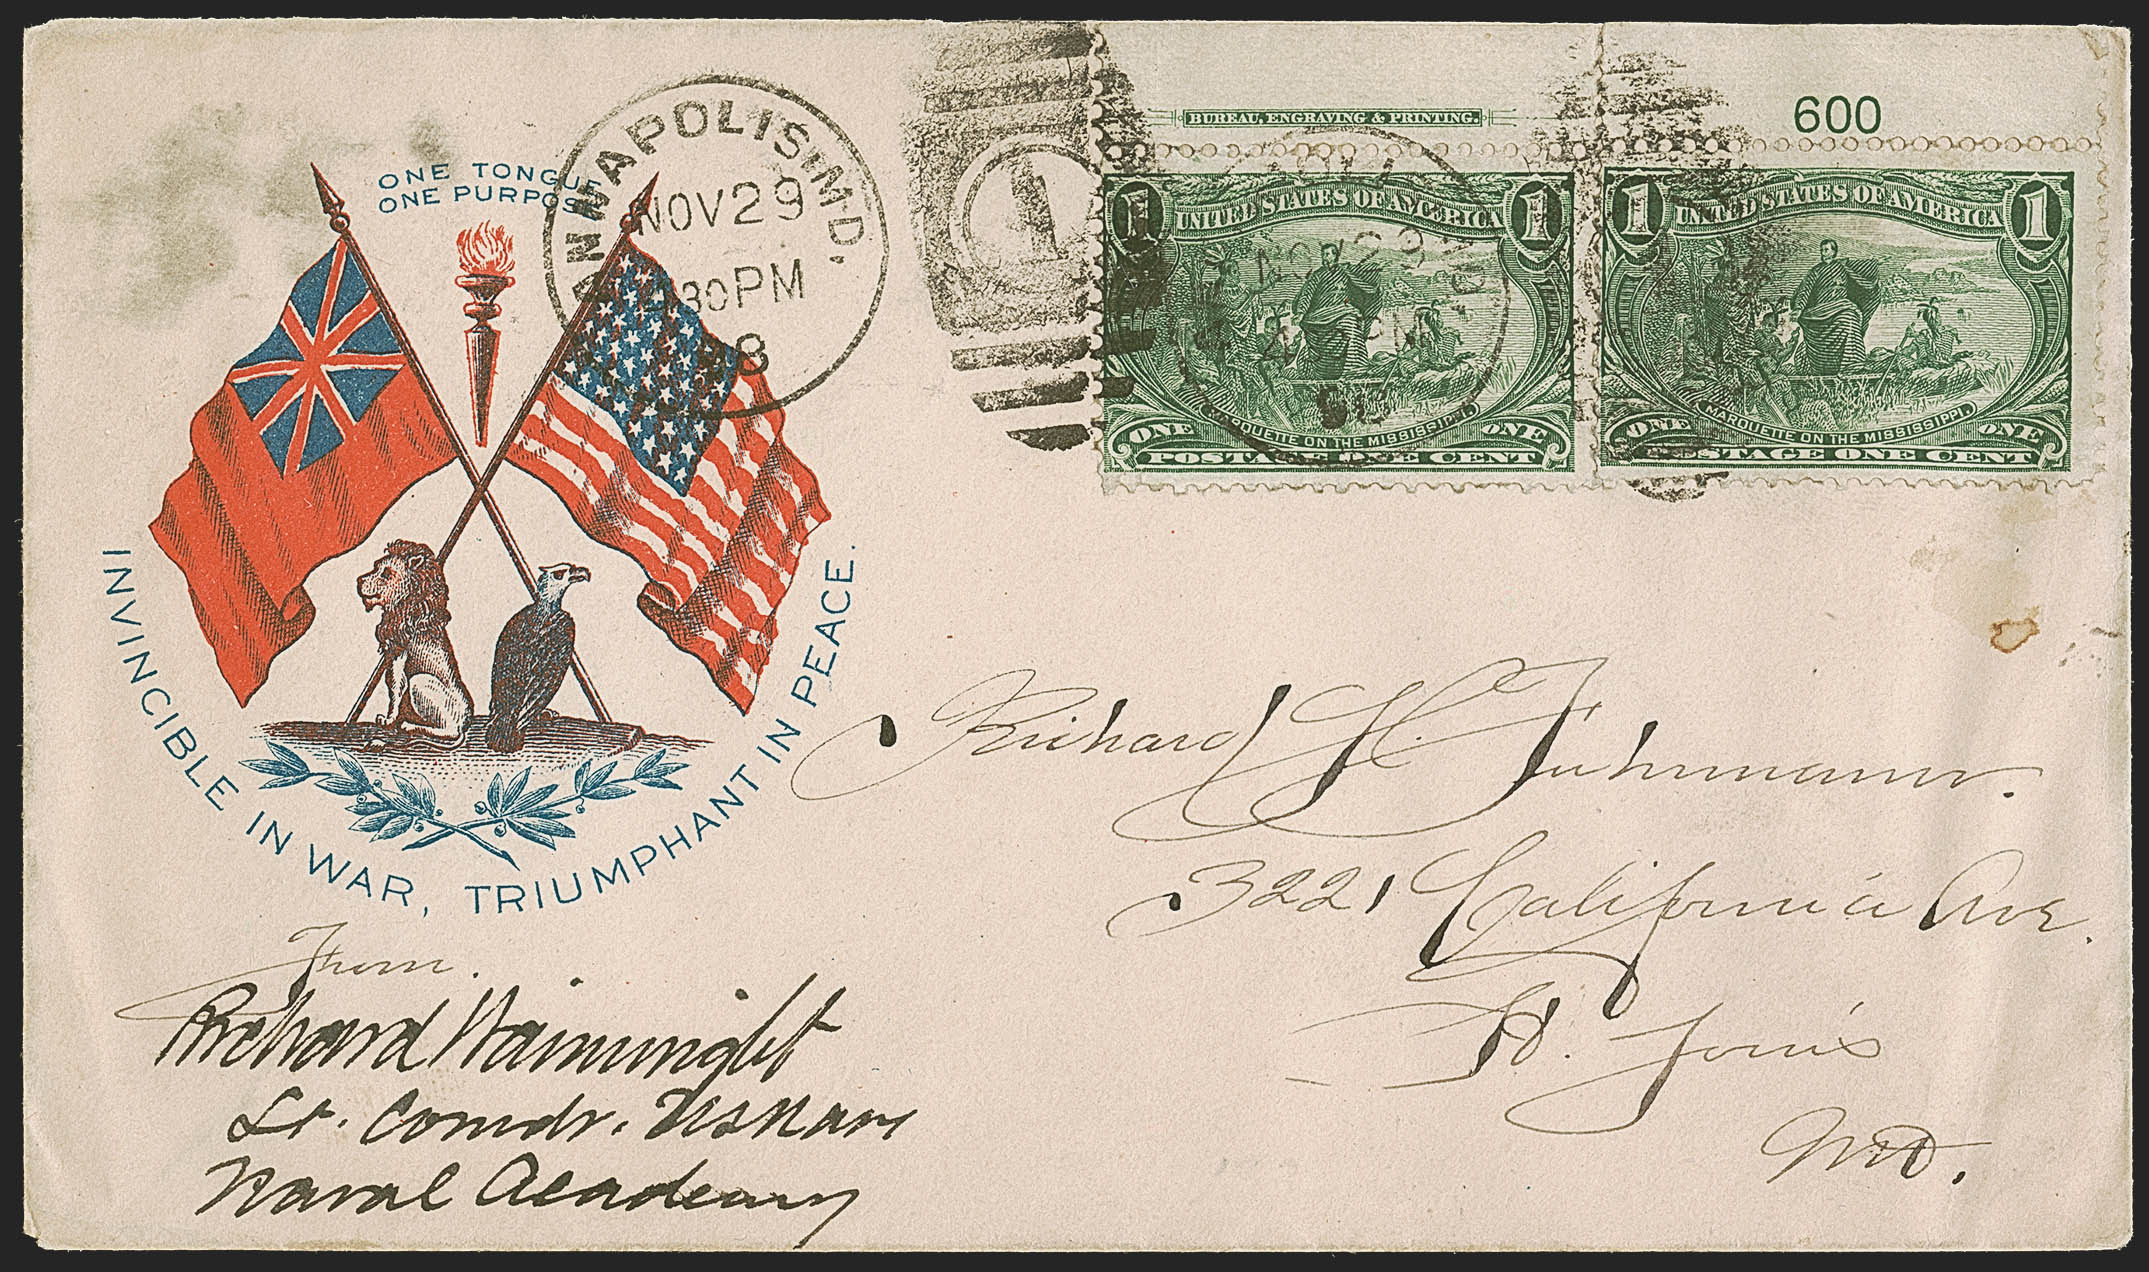 ONE TONGUE
ONE PURPOSE
ANNAPOLIS, MD.
NOV 29
30 PM
98
1
BUREAU, ENGRAVING & PRINTING.
600
1 UNITED STATES OF AMERICA 1
MARQUETTE ON THE MISSISSIPPI.
ONE ONE
POSTAGE ONE CENT
1 UNITED STATES OF AMERICA 1
MARQUETTE ON THE MISSISSIPPI.
ONE ONE
POSTAGE ONE CENT
NOV 29
PM
INVINCIBLE IN WAR, TRIUMPHANT IN PEACE.
Richard H. Fuhrmann.
3221 California Ave.
St. Louis
Mo.
From.
Richard Wainwright
Lt. Comdr. US Navy
Naval Academy